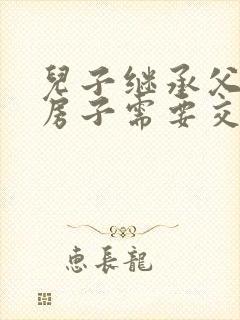 兒子继承父
房子需要交
惠長龍